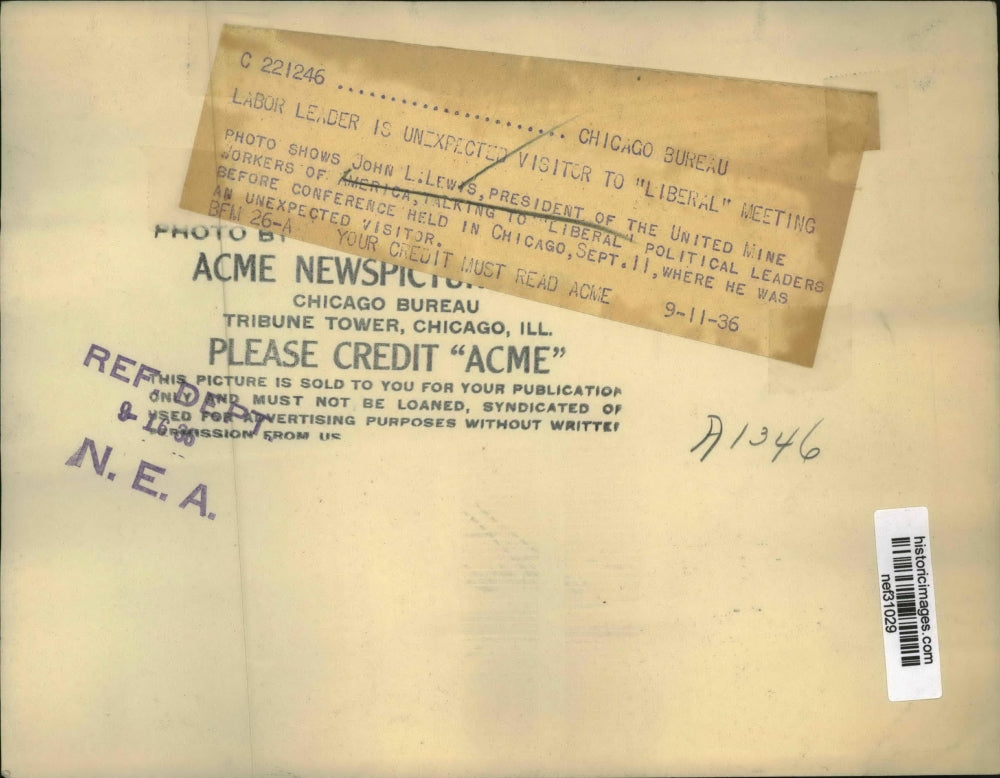 C 221246 ........................ CHICAGO BUREAU
LABOR LEADER IS UNEXPECTED VISITOR TO "LIBERAL" MEETING
PHOTO SHOWS JOHN L.LEWIS, PRESIDENT OF THE UNITED MINE
WORKERS OF AMERICA, TALKING TO "LIBERAL" POLITICAL LEADERS
BEFORE CONFERENCE HELD IN CHICAGO, SEPT.11, WHERE HE WAS
AN UNEXPECTED VISITOR.
BFM 26-A YOUR CREDIT MUST READ ACME 9-11-36
PHOTO BY
ACME NEWSPICTU
CHICAGO BUREAU
TRIBUNE TOWER, CHICAGO, ILL.
PLEASE CREDIT "ACME"
THIS PICTURE IS SOLD TO YOU FOR YOUR PUBLICATION
ONLY AND MUST NOT BE LOANED, SYNDICATED OF
USED FOR ADVERTISING PURPOSES WITHOUT WRITTEN
PERMISSION FROM US
REF. DEPT.
9-16-36
N. E. A.
A1346
historicimages.com
nef31029